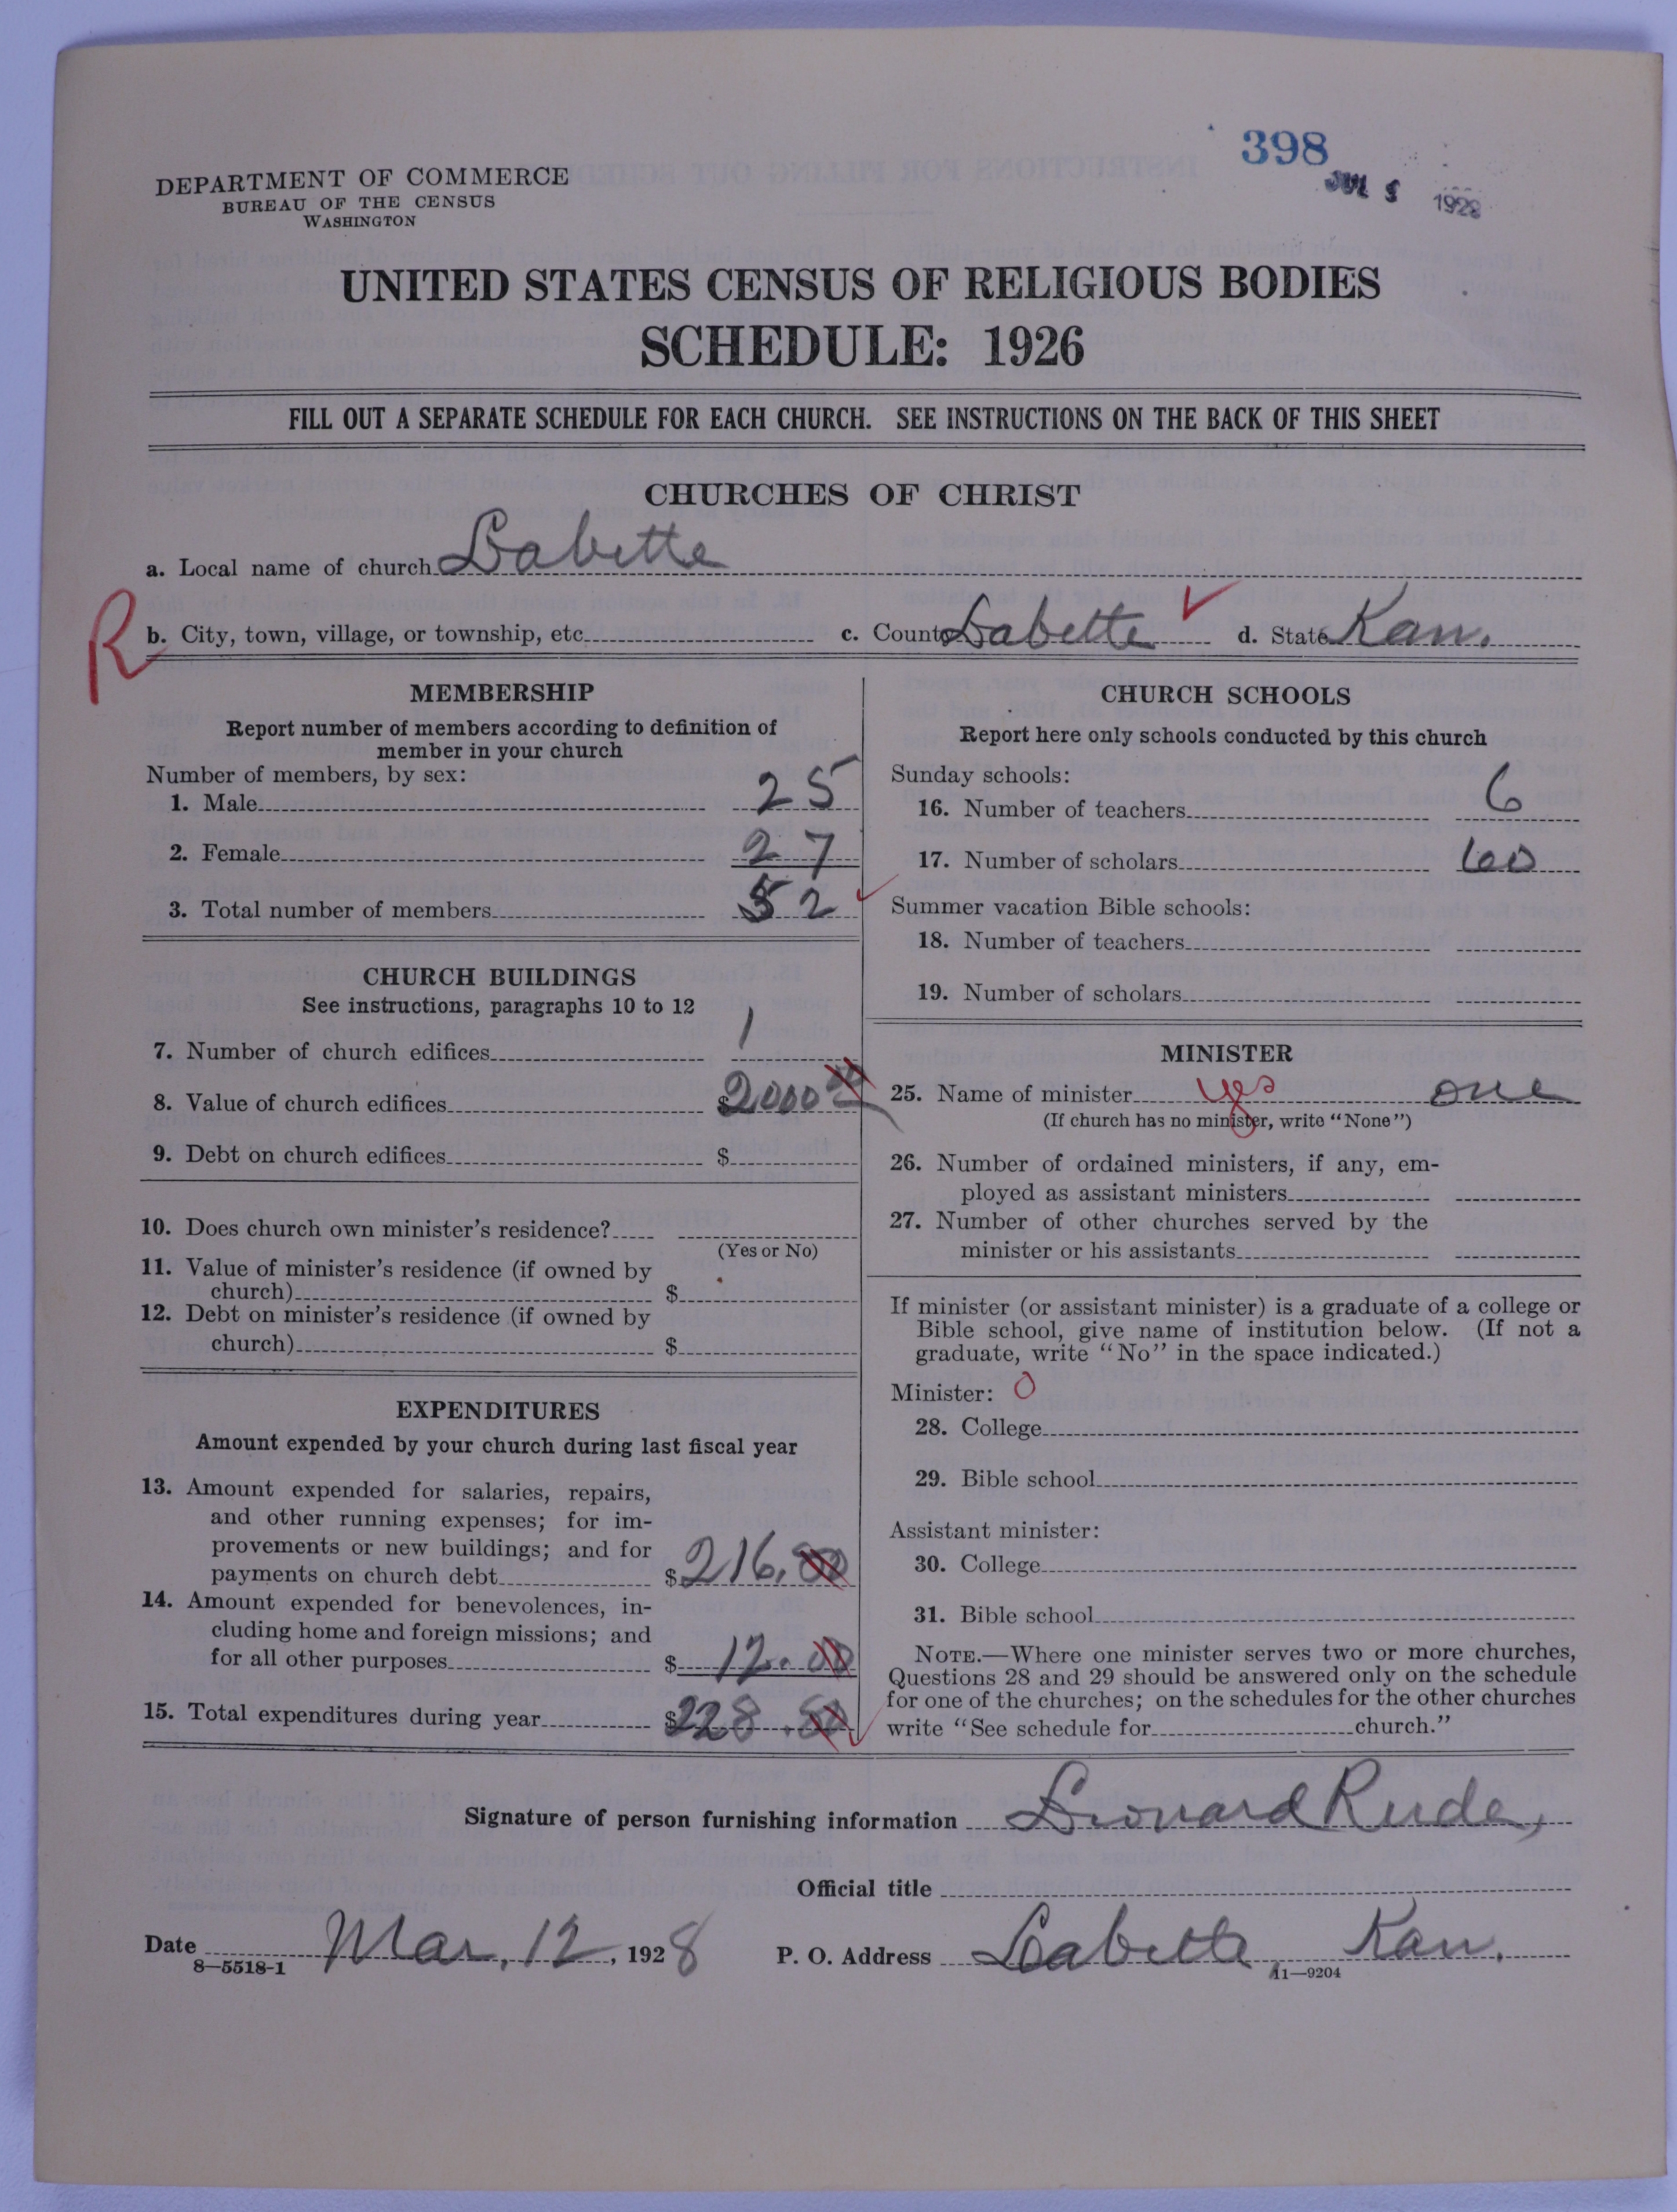 398
JUL 5 1928
DEPARTMENT OF COMMERCE
BUREAU OF THE CENSUS
WASHINGTON
UNITED STATES CENSUS OF RELIGIOUS BODIES
SCHEDULE: 1926
FILL OUT A SEPARATE SCHEDULE FOR EACH CHURCH. SEE INSTRUCTIONS ON THE BACK OF THIS SHEET
CHURCHES OF CHRIST
a. Local name of church Labette
R
b. City, town, village, or township, etc. c. County Labette d. State Kan.
MEMBERSHIP
Report number of members according to definition of
member in your church
Number of members, by sex:
1. Male 25
2. Female 27
3. Total number of members 52
CHURCH BUILDINGS
See instructions, paragraphs 10 to 12
7. Number of church edifices 1
8. Value of church edifices $2000 00
9. Debt on church edifices $
10. Does church own minister's residence?
(Yes or No)
11. Value of minister's residence (if owned by
church) $
12. Debt on minister's residence (if owned by
church) $
EXPENDITURES
Amount expended by your church during last fiscal year
13. Amount expended for salaries, repairs,
and other running expenses; for im-
provements or new buildings; and for
payments on church debt $216.00
14. Amount expended for benevolences, in-
cluding home and foreign missions; and
for all other purposes $12.00
15. Total expenditures during year $228.00
CHURCH SCHOOLS
Report here only schools conducted by this church
Sunday schools:
16. Number of teachers 6
17. Number of scholars 60
Summer vacation Bible schools:
18. Number of teachers
19. Number of scholars
MINISTER
25. Name of minister yes one
(If church has no minister, write "None")
26. Number of ordained ministers, if any, em-
ployed as assistant ministers
27. Number of other churches served by the
minister or his assistants
If minister (or assistant minister) is a graduate of a college or
Bible school, give name of institution below. (If not a
graduate, write "No" in the space indicated.)
Minister: 0
28. College
29. Bible school
Assistant minister:
30. College
31. Bible school
NOTE.—Where one minister serves two or more churches,
Questions 28 and 29 should be answered only on the schedule
for one of the churches; on the schedules for the other churches
write "See schedule for church."
Signature of person furnishing information Leonard Rude,
Official title
Date Mar. 12, 1928 P. O. Address Labette, Kan.
8—5518-1 11—9204